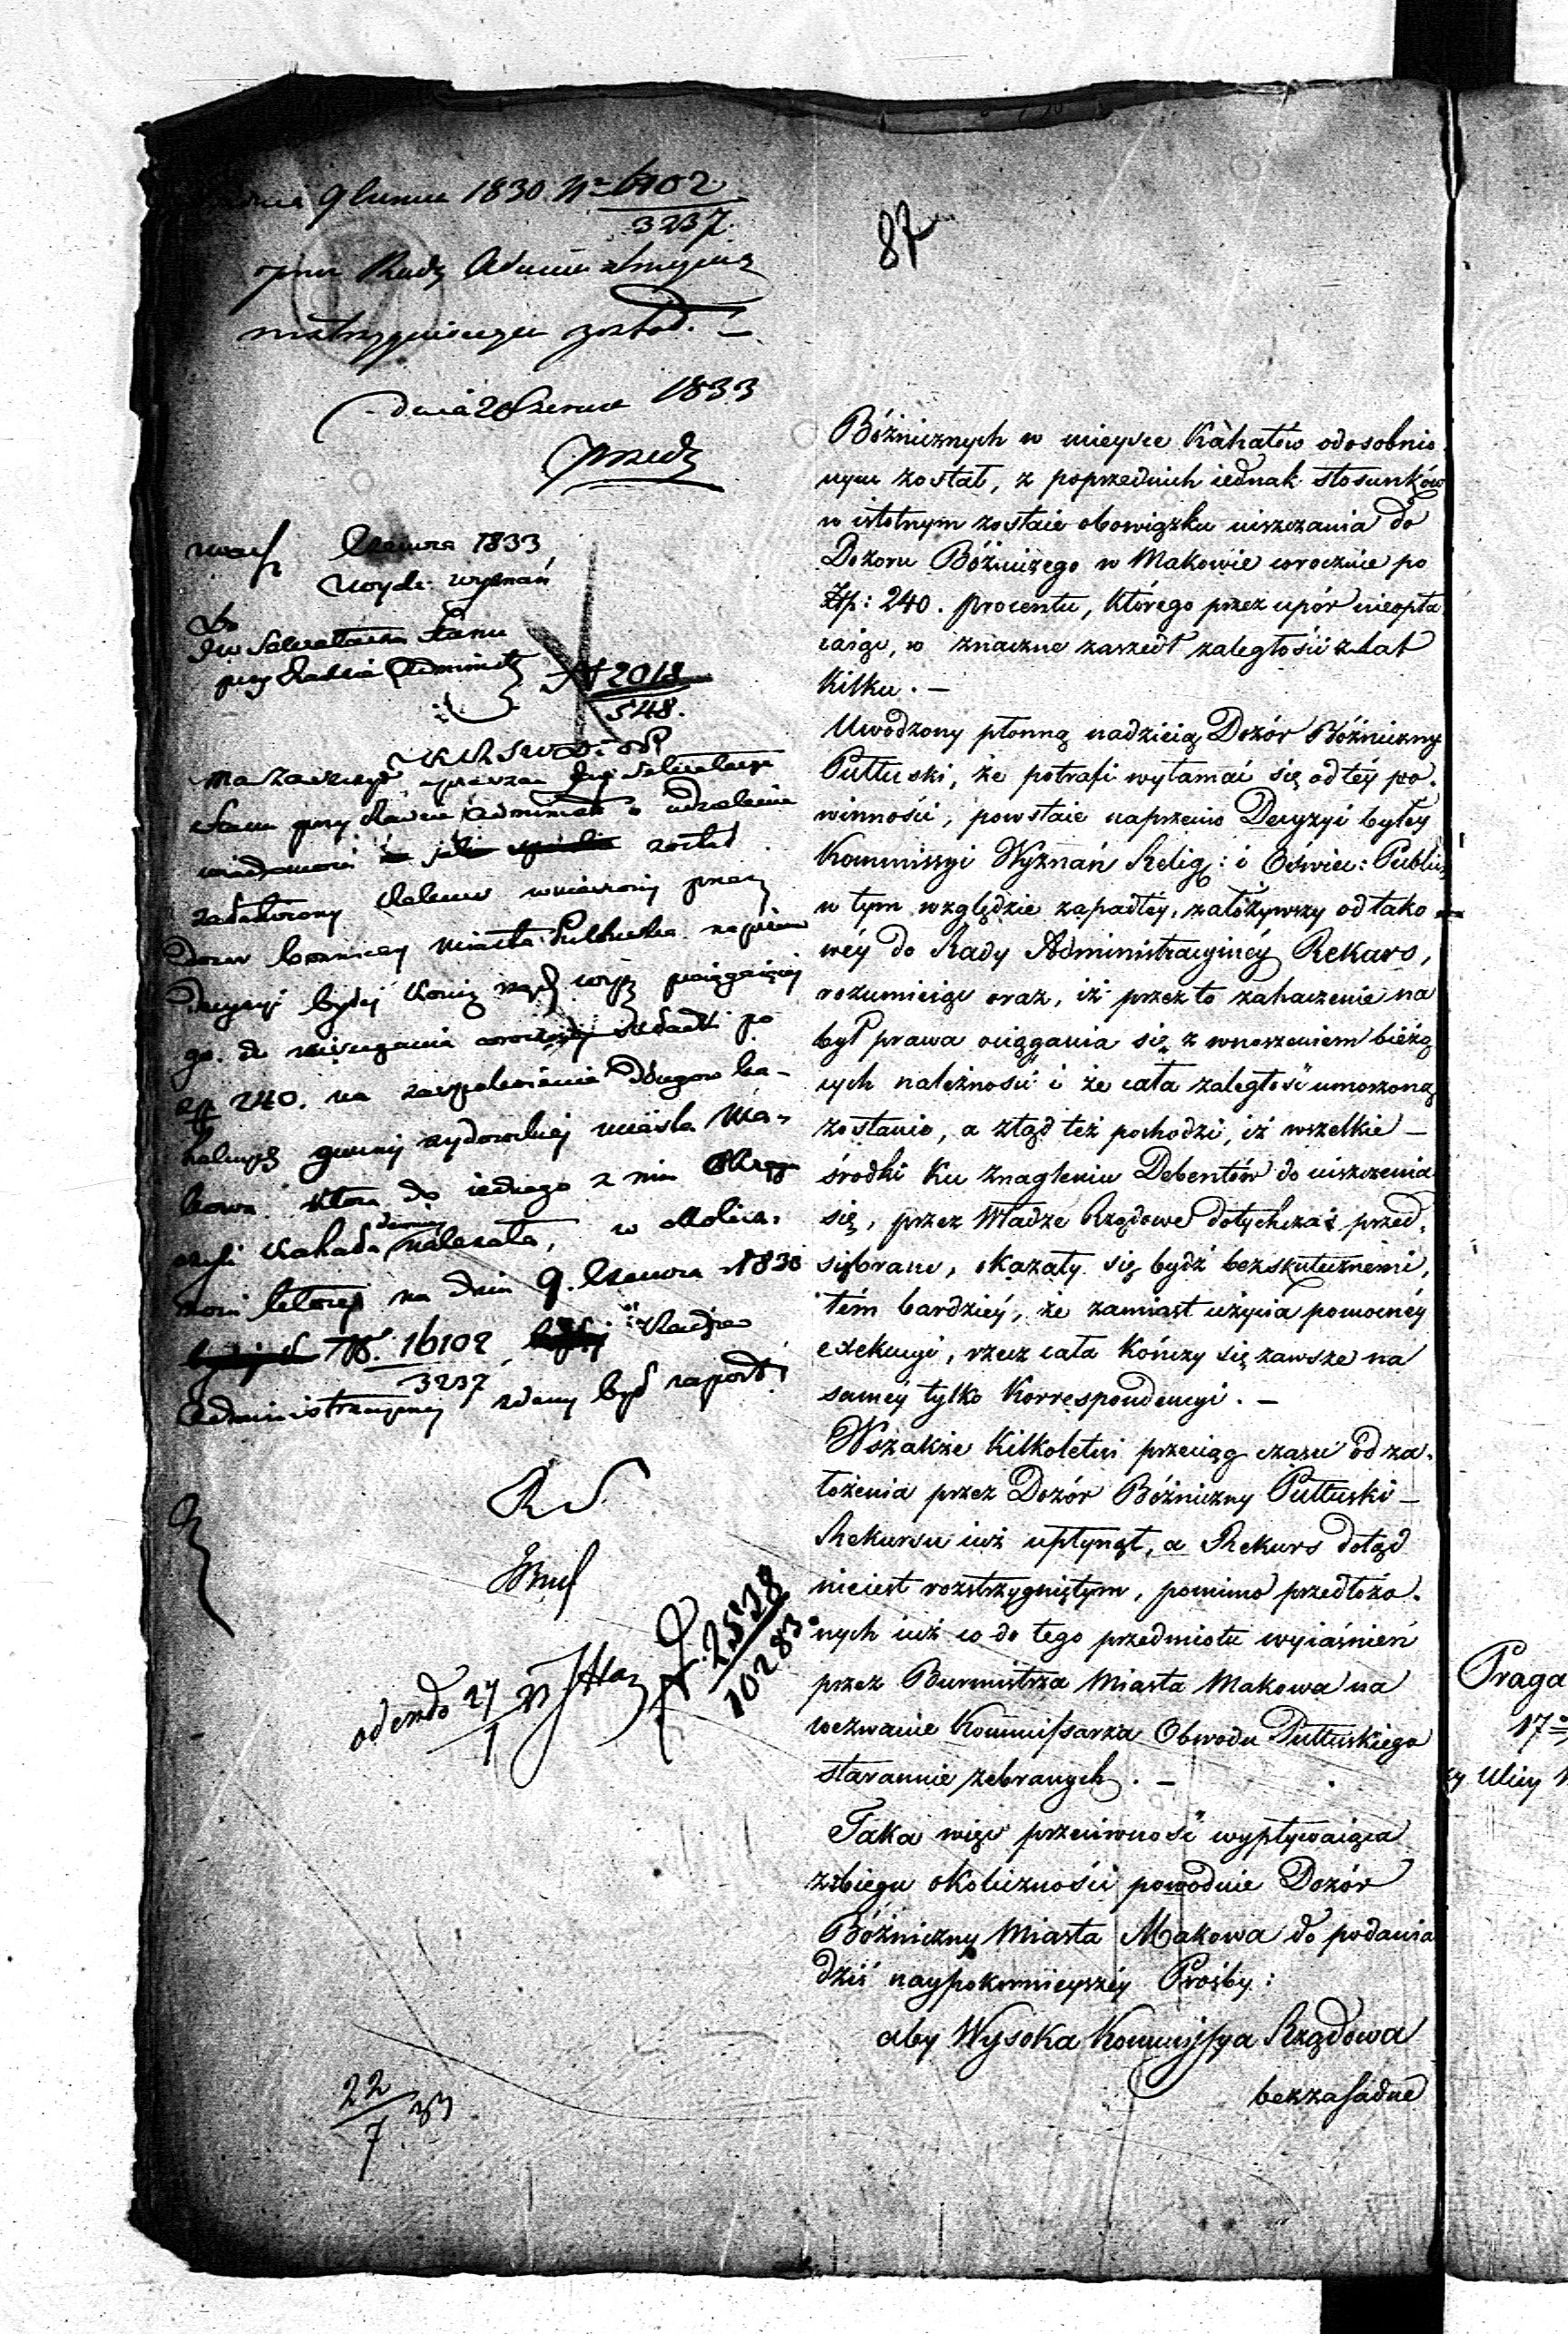 dnia 9 Czerwca 1830 Nr 16102
3237
opinia Rady Administracyinej
został. —
dnia 20 Czerwca 1833
87
Czerwca 1833
Wydz. wyznań
Do
JW Sekretarza Stanu
przy Radzie Administr
N 2018
548.
Ma zaszczyt upraszać JW Sekretarza
Stanu przy Radzie Administr o udzielenie
wiadomości został
załatwiony Rekurs wniesiony przez
Dozór Bożniczy miasta Pułtuska naprzeciw
Decyzyi byłej
go do uiszczania składki po
zp 240. na zaspokojenie długów ka-
halnych gminy żydowskiej miasta Ma-
kowa która do jednego z nim Okręgu
czyli Kahału dawniej należała, w okolicz-
ności której na dniu 9. Czerwca 1830
Nr. 16102 Radzie
3237
Administracyjnej zdany był raport.
RS
odesłano 27/7
N. 2528
10283.
22/7 33
Bóżnicznych w mieysce Kàhałów odosobnio
nym został, z poprzednich iednak stosunków
w istotnym zostaie obowiązku uiszczania do
Dozoru Bóżniczego w Makowie corocznie po
Złp: 240. procentu, którego przez upór nieopła
caiąc, w znaczne zaszedł zaległości z lat
kilku. —
Uwodzony płonną nadzieią Dozór Bóżniczny
Pułtuski, że potrafi wyłamać się od téy po-
winności, powstaie naprzeciw Decyzyi byłéy
Kommissyi Wyznań Relig: i Oświec: Public
w tym względzie zapadłéy, założywszy od tako
wéy do Rady Administracyinéy Rekurs,
rozumieiąc oraz, iż przez to zahaczenie na
był prawa ociągania się z wnoszeniem bieżą
cych należności i że cała zaległość umorzoną
zostanie, a ztąd też pochodzi, iż wszelkie —
środki ku znagleniu Debentów do uiszczenia
się, przez Władze Rządowe dotychczas przed-
sięwbrane, okazały się bydź bezskutecznemi,
tém bardziéy, że zamiast użycia pomocnéy
exekucyi, rzecz cała kończy się zawsze na
saméy tylko Korrespondencyi. —
Wszakże kilkoletni przeciąg czasu od za-
łożenia przez Dozór Bóżniczny Pułtuski —
Rekursu iuż upłynął, a Rekurs dotąd
nieiest rozstrzygniętym, pomimo przedłożo-
nych iuż co do tego przedmiotu wyiaśnień
przez Burmistrza Miasta Makowa na
wezwanie Kommissarza Obwodu Pułtuskiego
starannie zebranych. —
Taka więc przeciwność wypływaiąca
z zbiegu okoliczności powoduie Dozór
Bóżniczny Miasta Makowa do podania
dziś naypokornieyszéy Prośby:
aby Wysoka Kommissya Rządowa
bezzasadne
Praga
17
Ulicy